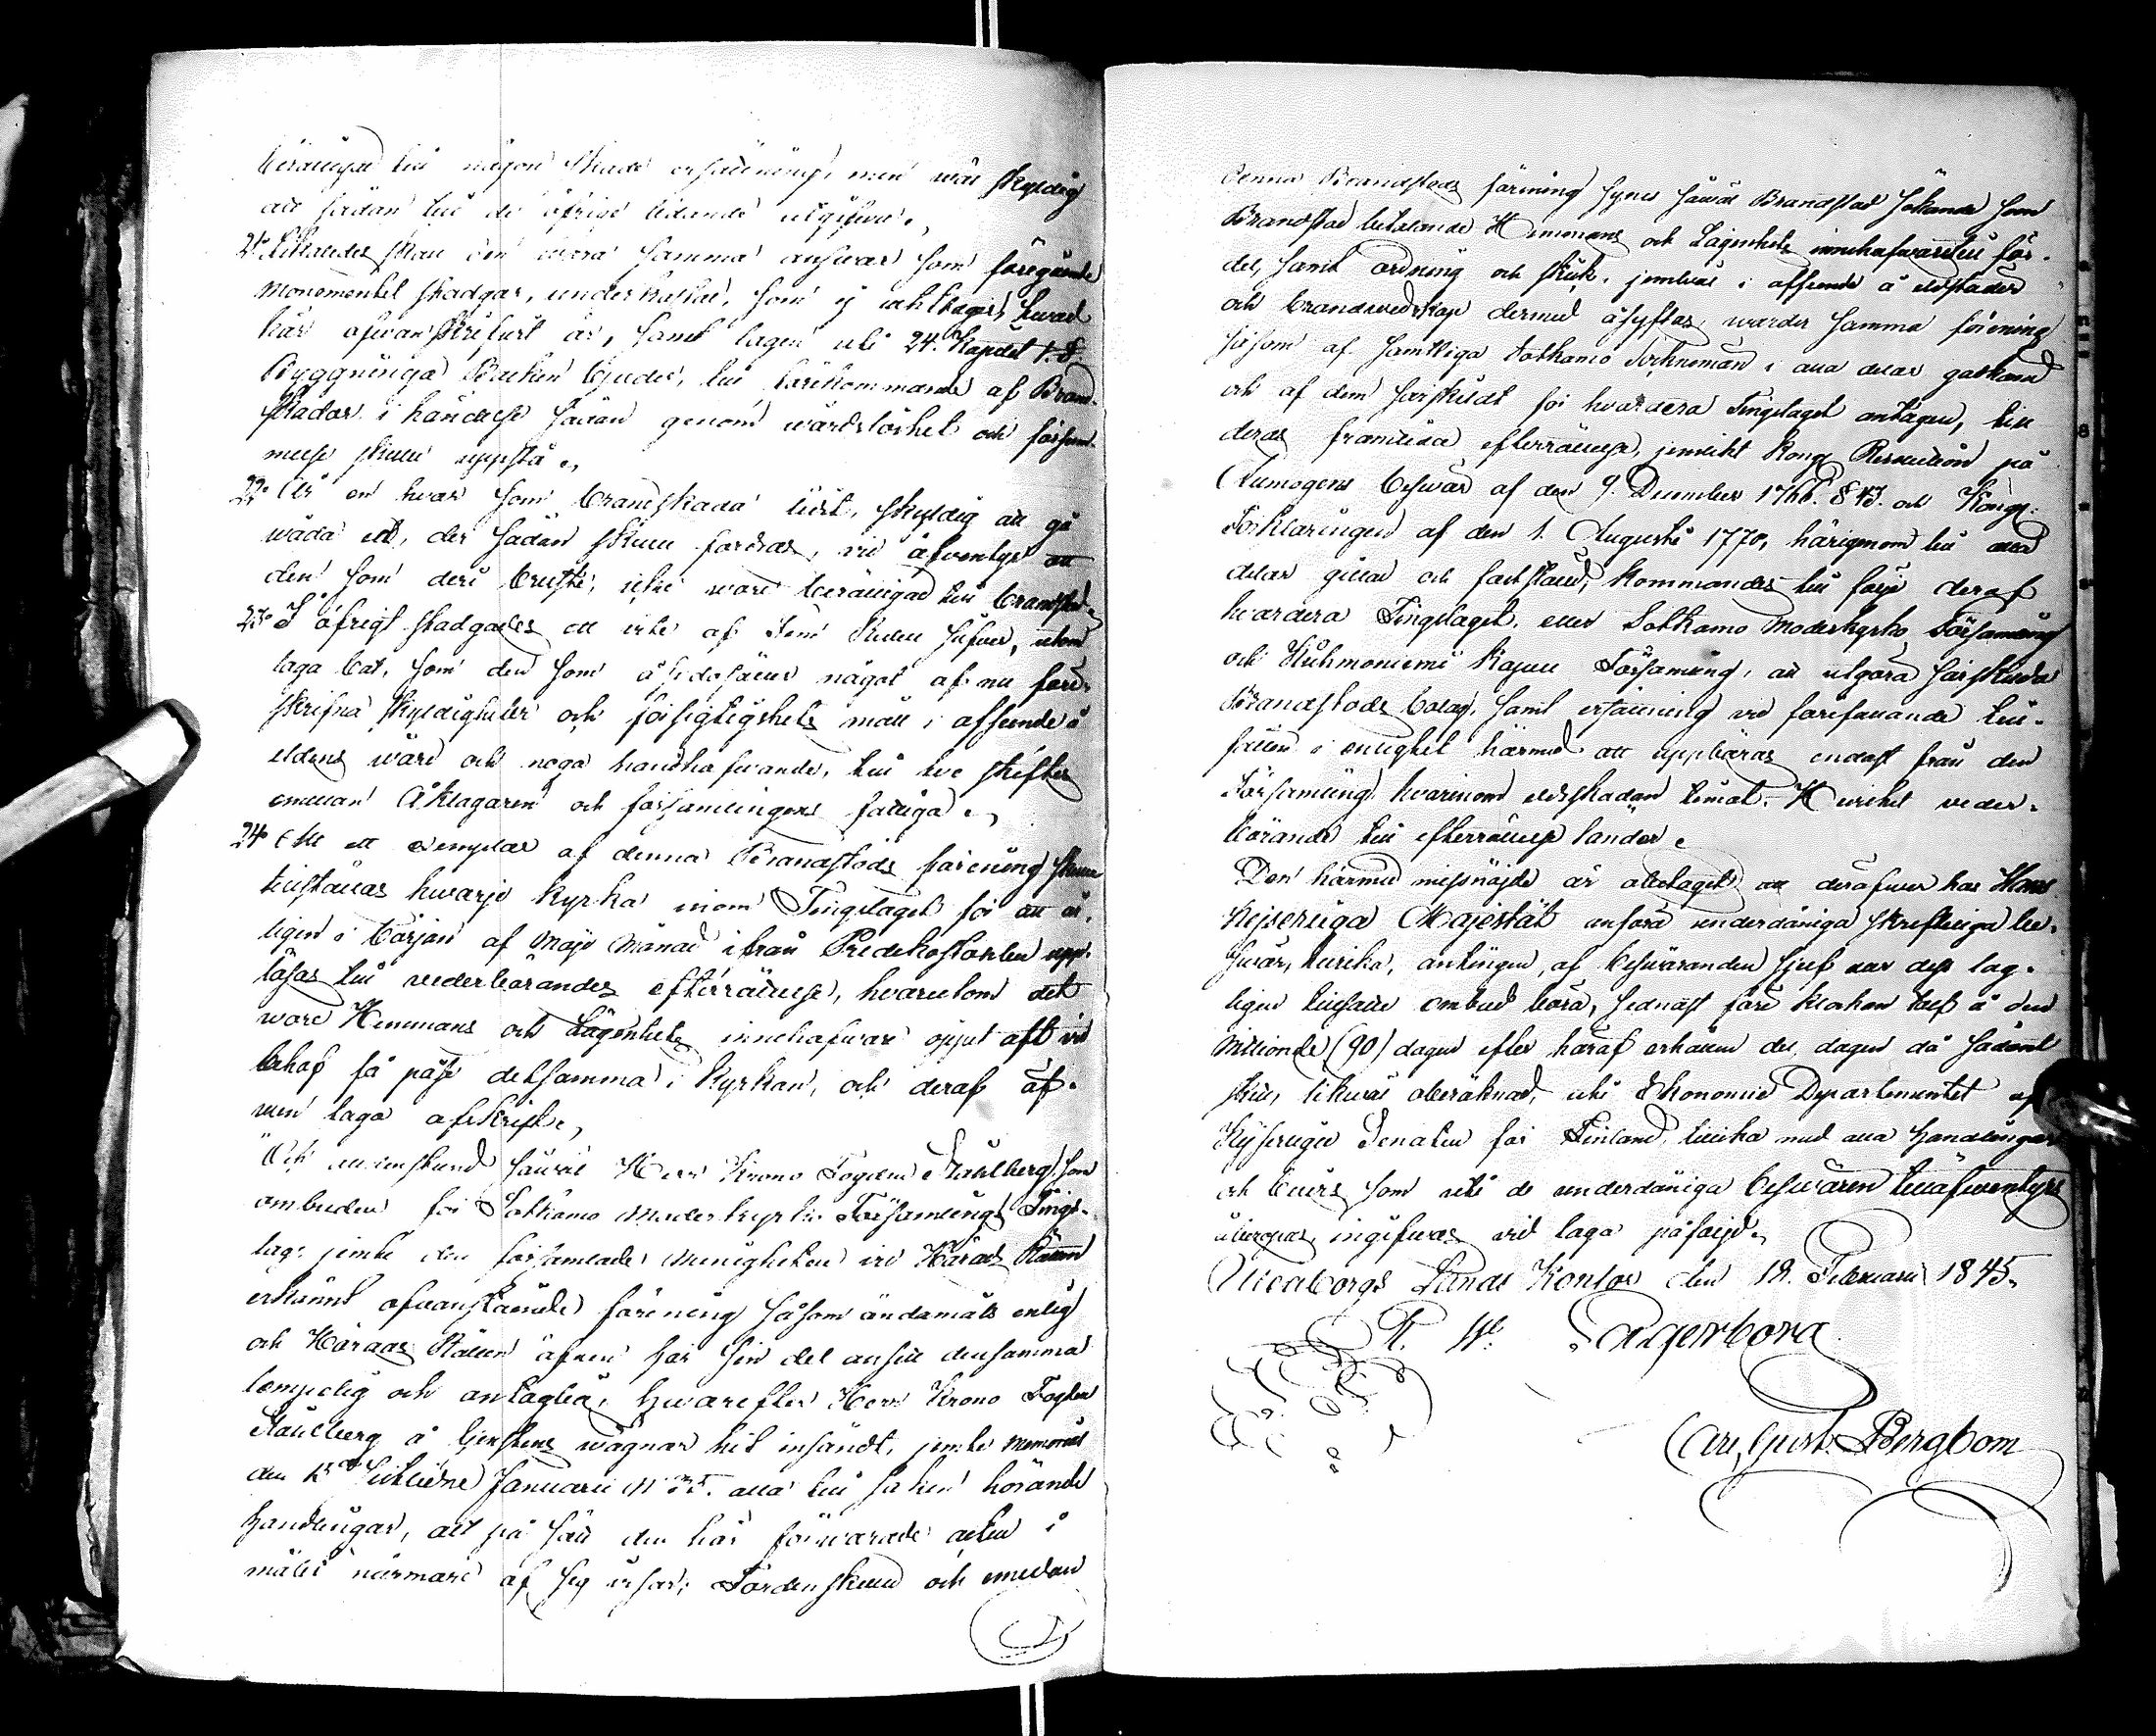 berättigad till någon skade ersättning, men wäl skyldig
att sådan till de öfrige lidande utgifwa.
21o Likaledes skall den wara samma answar som föregående
Momentet stadgar, underkastad, som ej iakttager hwad
här ofwanskrifwit är, samt lagen uti 24. Kapitlet
Byggninga Balken bjuder, till förekommande af Brand-
skador i händelse sådan genom wårdslöshet och försum-
melse skulle uppstå.
22o Är en hwar som brandskada lidit, skyldig att gå
wåda ed, der sådan skulle fordras, vid äfwentyr att
den som deri brister, icke ware berättigad till brandstod.
23o I öfrigt stadgades att icke af Fem Rubel Silfwer, utom
laga bot, som den som åsidosätter något af nu före-
skrifna skyldigheter och försigtighets mått i afseende å
eldens wård och noga handhafwande, till tve skiftes
emellan Åklagaren och församlingens fattiga.
24o Att ett exemplar af denna Brandstods förening skulle
tillställas hwarje kyrka inom Tingslaget för att år-
ligen i början af Maji Månad ifrån Predikostolen upp-
läsas till wederbörandes efterrättelse, hvarutom det
ware Hemmans och Lägenhets innehafware öppet att vid
behof få påse detsamma i Kyrkan, och deraf äf-
wen taga afskrift.
Och alldenstund såwäl Herr Krono Fogden Ståhlberg som
ombuden för Sotkamo Moderkyrko Församlings Tings-
lag jemte den församlade Menigheten vid Härads Rätten
erkänt ofwanstående förening såsom ändamåls enlig
och Härads Rätten äfwen för sin del ansett densamma
lämpelig och antaglig, hwarefter Herr Krono Fogden
Ståhlberg å tjenstens wägnar hit insändt, jemte Memorial
den 15 sistlidne Januarii No 35. alla till saken hörande
handlingar, allt på sätt den här förwarade acten i
målet närmare af sig wisar; Fördenskull och emedan
denna Brandstods förening synes såwäl Brandstod sökande som
Brandstod betalande Hemmans och Lägenhets innehafware till för-
del, samt ordning och skick, jemwäl i afseende å eldstäder
och brandredskap dermed åsyftas, warder samma förening
såsom af samtliga Sotkamo Socknemän i alla delar godkänd
och af dem särskildt för hwardera Tingslaget antagen, till
deras framtida efterrättelse, jemlikt Kongl. Resolution på
Allmogens beswär af den 9. December 1766. § 43. och Kongl.
Förklaringen af den 1. Augusti 1770, härigenom till alla
delar gillad och fastställd, kommandes till följe deraf
hwardera Tingslaget, eller Sotkamo Moderkyrko Församling
och Kuhmoniemi Kapell Församling, att utgöra särskilda
Brandstods bolag, samt ersättning vid förefallande till-
fällen i enlighet härmed att uppbäras endast från den
Församling, hvarinom eldskadan timat. Hwilket veder-
börande till efterrättelse länder.
Den härmed missnöjde är obetaget att deröfwer hos Hans
Kejserliga Majestät anföra underdåniga skrifteliga be-
swär, hwilka, antingen, af beswäranden sjelf eller dess lag-
ligen tillsatte ombud böra, sednast före klockan tolf å den
Nittionde (90) dagen efter häraf erhållen del, dagen då sådant
sker, likwäl oberäknad, uti Ekonomie Departementet af
Kejserliga Senaten för Finland, tillika med alla handlingar
och bewis som uti de underdåniga beswären till äfwentyrs
åberopas, ingifwas vid laga påföljd.
Uleåborgs Lands Kontor den 18. Februarii 1845.
R. W. Lagerborg
Carl Gust. Bergbom